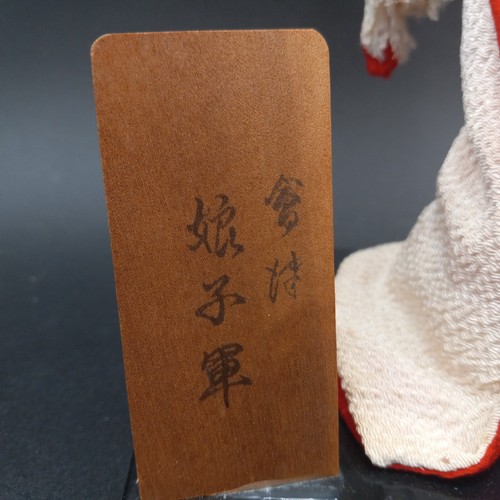 會津
娘子軍